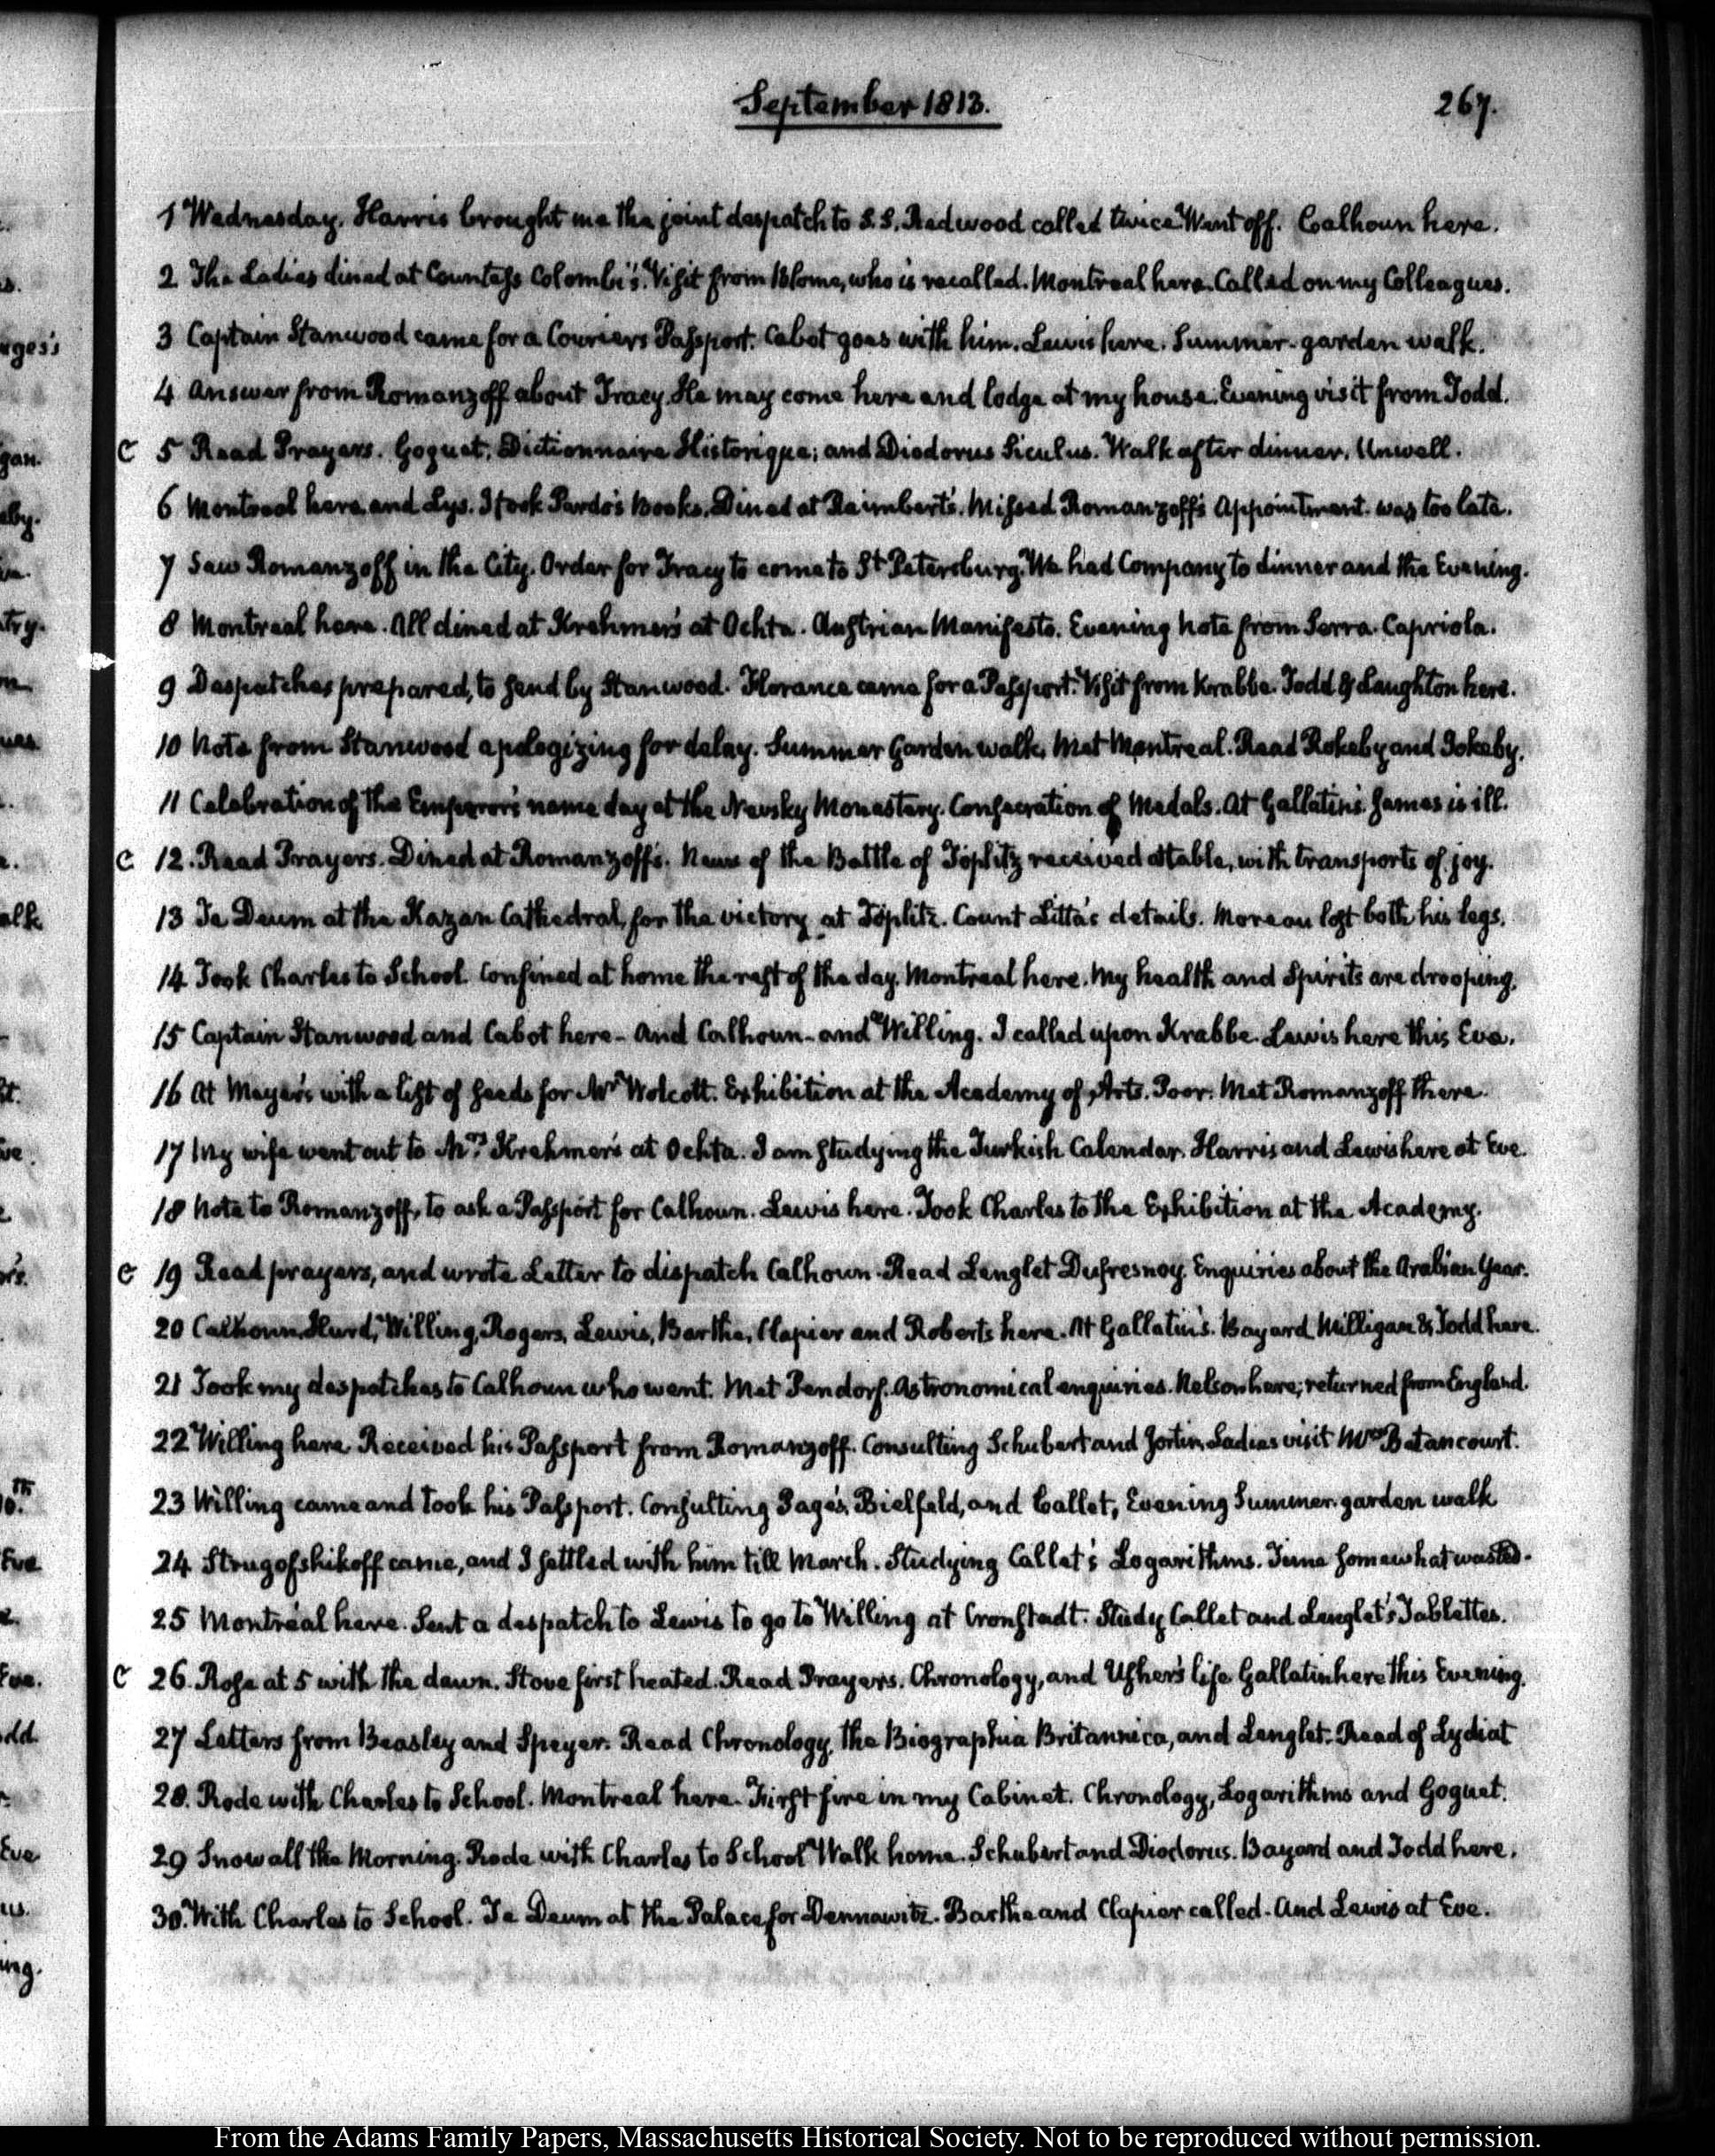 September 1813.
267.
1 Wednesday. Harris brought me the joint despatch to S.S. Redwood called twice. Went off. Calhoun here.
2 The Ladies dined at Countess Colombi's. Visit from Blome, who is recalled. Montreal here. Called on my Colleagues.
3 Captain Stanwood came for a Couriers Passport. Cabot goes with him. Lewis here. Summer-garden walk.
4 Answer from Romanzoff about Tracy. He may come here and lodge at my house. Evening visit from Todd.
C 5 Read Prayers. Goguet. Dictionnaire Historique; and Diodorus Siculus. Walk after dinner. Unwell.
6 Montreal here, and Lys. I took Pardo's Books. Dined at Raimbert's. Missed Romanzoff's Appointment. was too late.
7 Saw Romanzoff in the City. Order for Tracy to come to St. Petersburg. We had Company to dinner and the Evening.
8 Montreal here. All dined at Krehmer's at Ochta. Austrian Manifesto. Evening Note from Serra-Capriola.
9 Despatches prepared, to send by Stanwood. Florance came for a Passport. Visit from Krabbe. Todd & Laughton here.
10 Note from Stanwood apologizing for delay. Summer Garden walk. Met Montreal. Read Rokeby and Jokeby.
11 Celebration of the Emperor's name day at the Nevsky Monastery. Consecration of Medals. At Gallatin's. James is ill.
C 12. Read Prayers. Dined at Romanzoff's. News of the Battle of Töplitz received at table, with transports of joy.
13 Te Deum at the Kazan Cathedral, for the victory at Töplitz. Count Litta's details. Moreau lost both his legs.
14 Took Charles to School. Confined at home the rest of the day. Montreal here. My health and Spirits are drooping.
15 Captain Stanwood and Cabot here - And Calhoun - and Willing. I called upon Krabbe. Lewis here this Eve.
16 At Meyer's with a list of seeds for Mr Wolcott. Exhibition at the Academy of Arts. Poor. Met Romanzoff there.
17 My wife went out to Mrs. Krehmer's at Ochta. I am studying the Turkish Calendar. Harris and Lewis here at Eve.
18 Note to Romanzoff, to ask a Passport for Calhoun. Lewis here. Took Charles to the Exhibition at the Academy.
C 19 Read prayers, and wrote Letter to dispatch Calhoun. Read Lenglet Dufresnoy. Enquiries about the Arabian Year.
20 Calhoun, Hurd, Willing, Rogers, Lewis, Barthe, Clapier and Roberts here. At Gallatin's. Bayard Milligan & Todd here.
21 Took my despatches to Calhoun who went. Met Bendorf. Astronomical enquiries. Nelson here; returned from England.
22 Willing here. Received his Passport from Romanzoff. Consulting Schubert and Jortin. Ladies visit Mrs Betancourt.
23 Willing came and took his Passport. Consulting Pagès, Bielfeld, and Callet, Evening Summer-garden walk
24 Strugofshikoff came, and I settled with him till March. Studying Callet's Logarithms. Time somewhat wasted.
25 Montréal here. Sent a despatch to Lewis to go to Willing at Cronstadt. Study Callet and Lenglet's Tablettes.
C 26. Rose at 5 with the dawn. Stove first heated. Read Prayers. Chronology, and Usher's life. Gallatin here this Evening.
27 Letters from Beasley and Speyer. Read Chronology. The Biographia Britannica, and Lenglet. Read of Lydiat
28. Rode with Charles to School. Montreal here. First fire in my Cabinet. Chronology, Logarithms and Goguet.
29 Snow all the Morning. Rode with Charles to School Walk home. Schubert and Diodorus. Bayard and Todd here.
30. With Charles to School. Te Deum at the Palace for Dennawitz. Barthe and Clapier called. And Lewis at Eve.
From the Adams Family Papers, Massachusetts Historical Society. Not to be reproduced without permission.